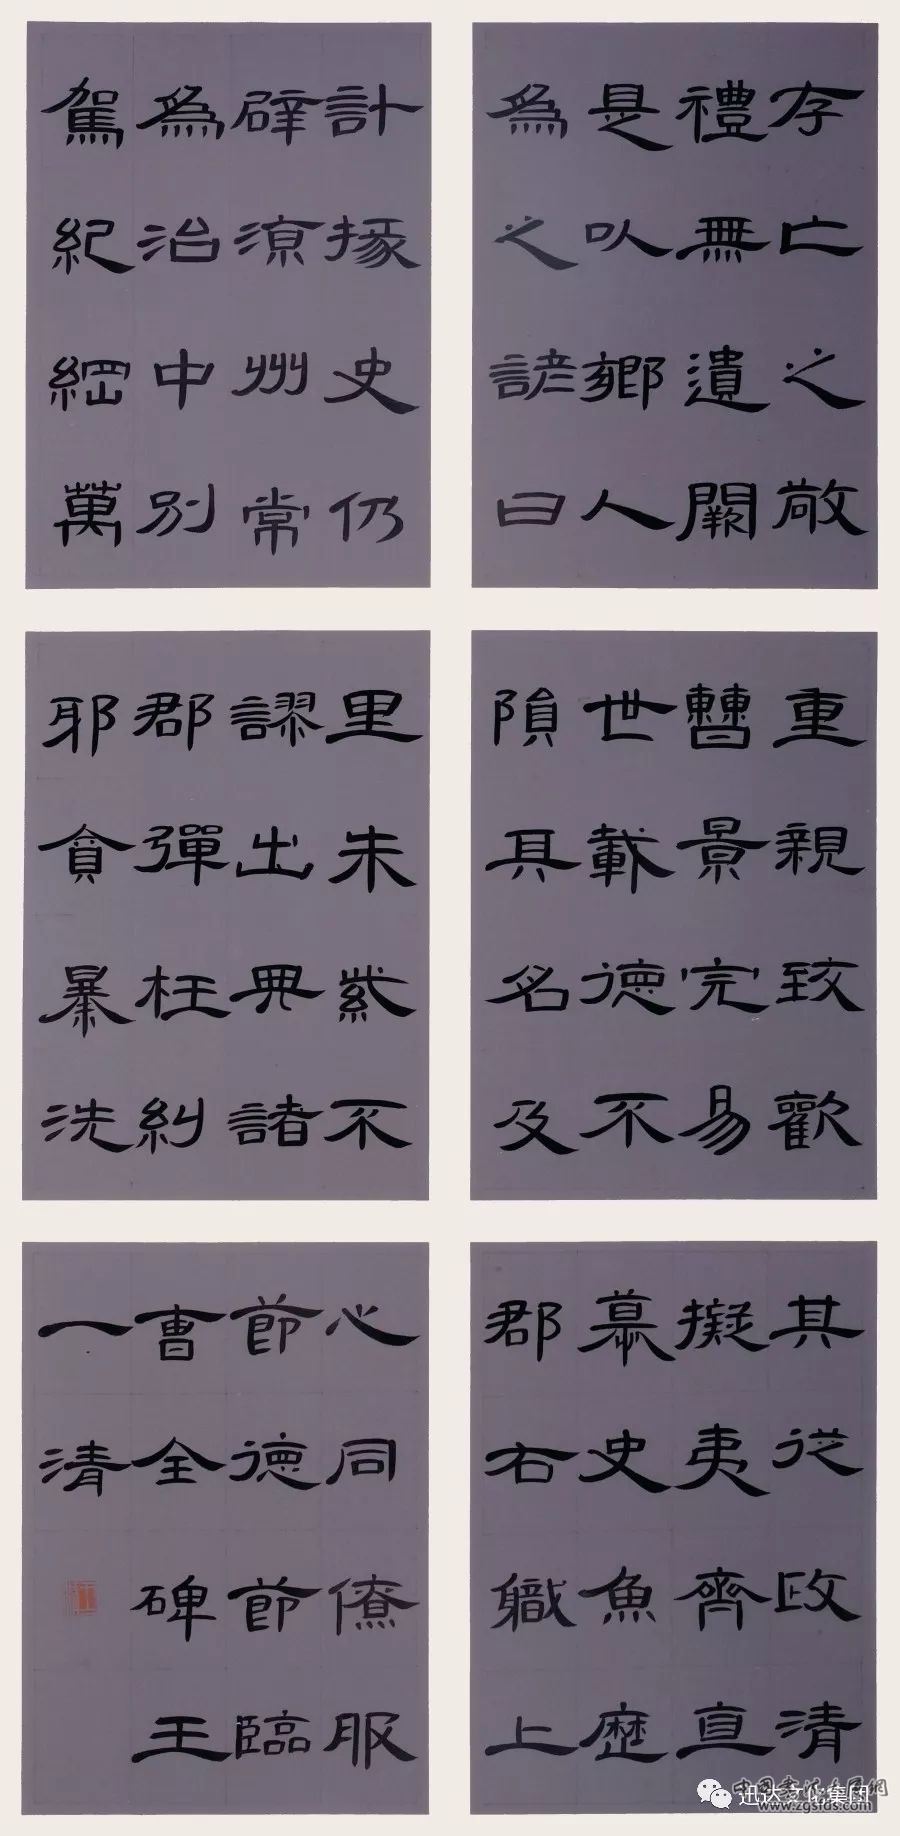 存亡之敬
禮無遺闕
是以鄉人
為之諺曰
重親致歡
曹景完易
世載德不
隕其名及
其從政清
擬夷齊直
慕史魚歷
郡右職上
計掾史仍
辟涼州常
為治中別
駕紀綱萬
里朱紫不
謬出典諸
郡彈枉糾
邪貪暴洗
心同僚服
節德節臨
曹全碑王
一清
迅达文化集团
www.zgsfds.com